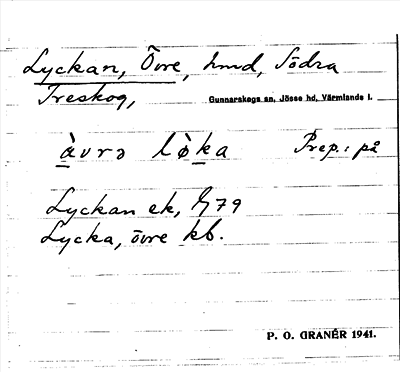 Lyckan, Övre, hmd, Södra
Treskog, Gunnarskogs sn, Jösse hd, Värmlands l.
àvrə lø̀ka Prep.: på
Lyckan ek, G79
Lycka, övre kb.
P. O. GRANÉR 1941.